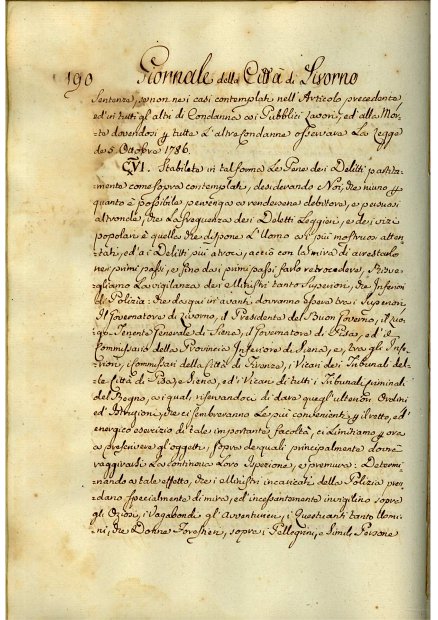 190 Giornale della Città di Livorno
Sentenza, se non nei casi contemplati nell'Articolo precedente
ed in tutti gl'altri di Condanna ai Pubblici Lavori, ed alla Mor-
te dovendosi per tutte L'altre condanne osservare La Legge
de 5. Ottobre 1786.
CVI. Stabilite in tal forma Le Pene dei Delitti partita-
mente come sopra contemplati, desiderando Noi, che niuno per
quanto è possibile pervenga a rendersene debitore, e persuasi
altronde, che La frequenza dei Delitti Leggieri, e dei vizi
popolari è quella che dispone L'Uomo ai più mostruosi atten-
tati, ed ai Delitti più atroci, acciò con la mira di arrestarlo
nei primi passi, e fino dai primi passi farlo retrocedere,
gliamo La vigilanza dei Ministri tanto Superiori, che Inferiori
di Polizia: che da qui in avanti dovranno essere tra i Superiori
Il Governatore di Livorno, il Presidente del Buon Governo, il Luo-
go Tenente Generale di Siena, il Governatore di Pisa, ed il
Commissario della Provincia Inferiore di Siena, e, tra gli Infe-
riori, i Commissari della Città di Firenze, i Vicari dei Tribunali del-
le Città di Pisa, e Siena, ed i Vicari di tutti i Tribunali Criminali
del Regno, ai quali, riservandoci di dare quegl'ulteriori Ordini
ed Istruzioni, che ci sembreranno Le più convenienti per il retto, ed
energico esercizio di tale importante facoltà, ci Limitiamo per ora
a prescrivere gl'oggetti, sopra de quali principalmente dovrà
raggirarsi La continova Loro Ispezione, e premura: Determi-
nando a tale effetto, che i Ministri incaricati della Polizia pren-
dano specialmente di mira, ed incessantemente invigilino sopra
gli Oziosi, i Vagabondi, gl'Avventurieri, i Questuanti tanto Uomi-
ni, che Donne Forestiere, sopra i Pellegrini, e Simili Persone